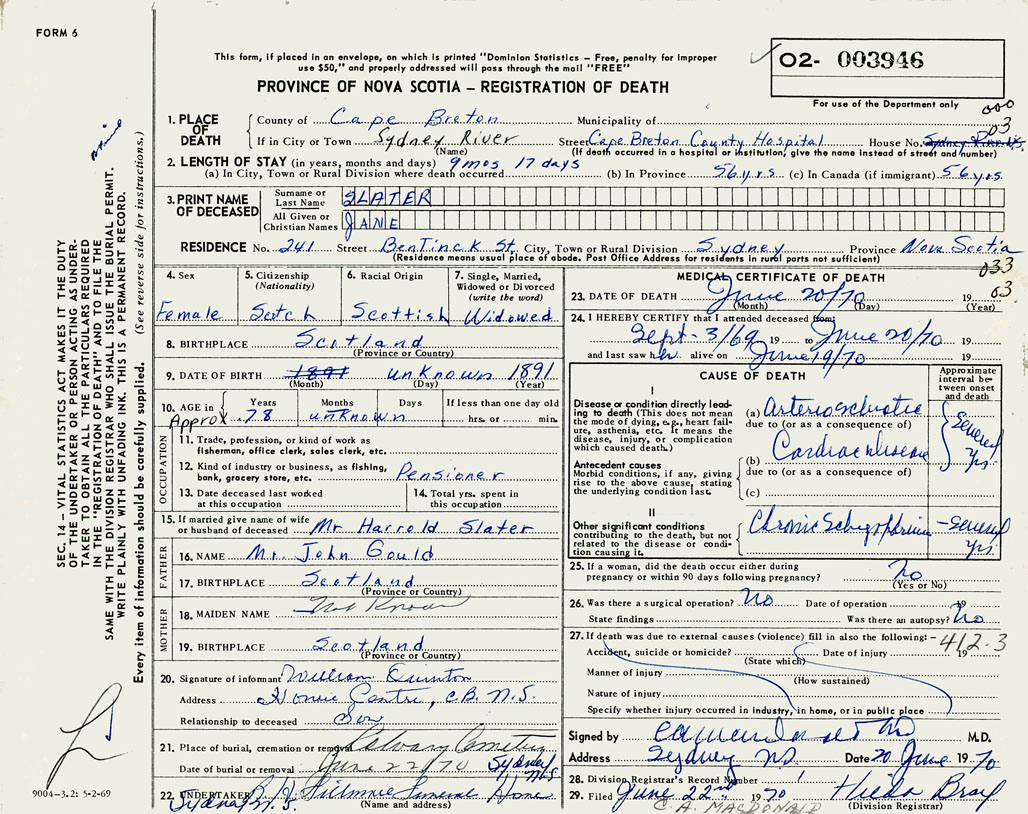 FORM 6
This form, if placed in an envelope, on which is printed "Dominion Statistics – Free, penalty for improper
use $50," and properly addressed will pass through the mail "FREE"
O2- 003946
PROVINCE OF NOVA SCOTIA – REGISTRATION OF DEATH
For use of the Department only
000
03
1. PLACE OF DEATH
County of Cape Breton Municipality of
If in City or Town Sydney River Street Cape Breton County Hospital House No. Sydney River N.S.
(Name) (If death occurred in a hospital or institution, give the name instead of street and number)
2. LENGTH OF STAY (in years, months and days) 9 mos 17 days
(a) In City, Town or Rural Division where death occurred (b) In Province 56 yrs (c) In Canada (if immigrant) 56 yrs.
3. PRINT NAME OF DECEASED
Surname or Last Name SLATER
All Given or Christian Names JANE
RESIDENCE No. 241 Street Bentinck St. City, Town or Rural Division Sydney Province Nova Scotia
(Residence means usual place of abode. Post Office Address for residents in rural parts not sufficient)
033
03
4. Sex Female
5. Citizenship (Nationality) Scotch
6. Racial Origin Scottish
7. Single, Married, Widowed or Divorced (write the word) Widowed
8. BIRTHPLACE Scotland
(Province or Country)
9. DATE OF BIRTH 1891 unknown 1891
(Month) (Day) (Year)
10. AGE in Years Months Days If less than one day old
Approx 78 unknown hrs. or min.
OCCUPATION
11. Trade, profession, or kind of work as
fisherman, office clerk, sales clerk, etc.
12. Kind of industry or business, as fishing,
bank, grocery store, etc. Pensioner
13. Date deceased last worked
at this occupation
14. Total yrs. spent in
this occupation
15. If married give name of wife
or husband of deceased Mr Harrold Slater
FATHER
16. NAME Mr. John Gould
17. BIRTHPLACE Scotland
(Province or Country)
MOTHER
18. MAIDEN NAME Not Known
19. BIRTHPLACE Scotland
(Province or Country)
20. Signature of informant William
Address C.B. N.S.
Relationship to deceased Son
21. Place of burial, cremation or removal Calvary Cemetery
Date of burial or removal June 22/70 Sydney N.S.
22. UNDERTAKER Funeral Home
Sydney N.S. (Name and address)
MEDICAL CERTIFICATE OF DEATH
23. DATE OF DEATH June 20/70 19
(Month) (Day) (Year)
24. I HEREBY CERTIFY that I attended deceased from:
Sept. 3/69 19 to June 20/70
and last saw her alive on June 19/70 19
CAUSE OF DEATH
Approximate interval between onset and death
I
Disease or condition directly leading to death (This does not mean the mode of dying, e.g., heart failure, asthenia, etc. It means the disease, injury, or complication which caused death.)
(a) Arteriosclerotic
due to (or as a consequence of)
Several yrs.
Antecedent causes
Morbid conditions, if any, giving rise to the above cause, stating the underlying condition last.
(b) Cardiac disease
due to (or as a consequence of)
(c)
II
Other significant conditions
contributing to the death, but not related to the disease or condition causing it.
Chronic Schizophrenia – Several yrs.
25. If a woman, did the death occur either during
pregnancy or within 90 days following pregnancy? No
(Yes or No)
26. Was there a surgical operation? No Date of operation 19
State findings Was there an autopsy? No
27. If death was due to external causes (violence) fill in also the following: – 412-3
Accident, suicide or homicide? Date of injury 19
(State which)
Manner of injury
(How sustained)
Nature of injury
Specify whether injury occurred in industry, in home, or in public place
Signed by M.D.
Address Sydney NS Date 20 June 1970
28. Division Registrar's Record Number 1
29. Filed June 22nd 1970 Hilda
C. A. MACDONALD (Division Registrar)
SEC. 14 – VITAL STATISTICS ACT MAKES IT THE DUTY
OF THE UNDERTAKER OR PERSON ACTING AS UNDER-
TAKER TO OBTAIN ALL THE PARTICULARS REQUIRED
IN THE "REGISTRATION OF DEATH" AND TO FILE THE
SAME WITH THE DIVISION REGISTRAR WHO SHALL ISSUE THE BURIAL PERMIT.
WRITE PLAINLY WITH UNFADING INK. THIS IS A PERMANENT RECORD.
Every item of information should be carefully supplied. (See reverse side for instructions.)
9004-3.2: 5-2-69